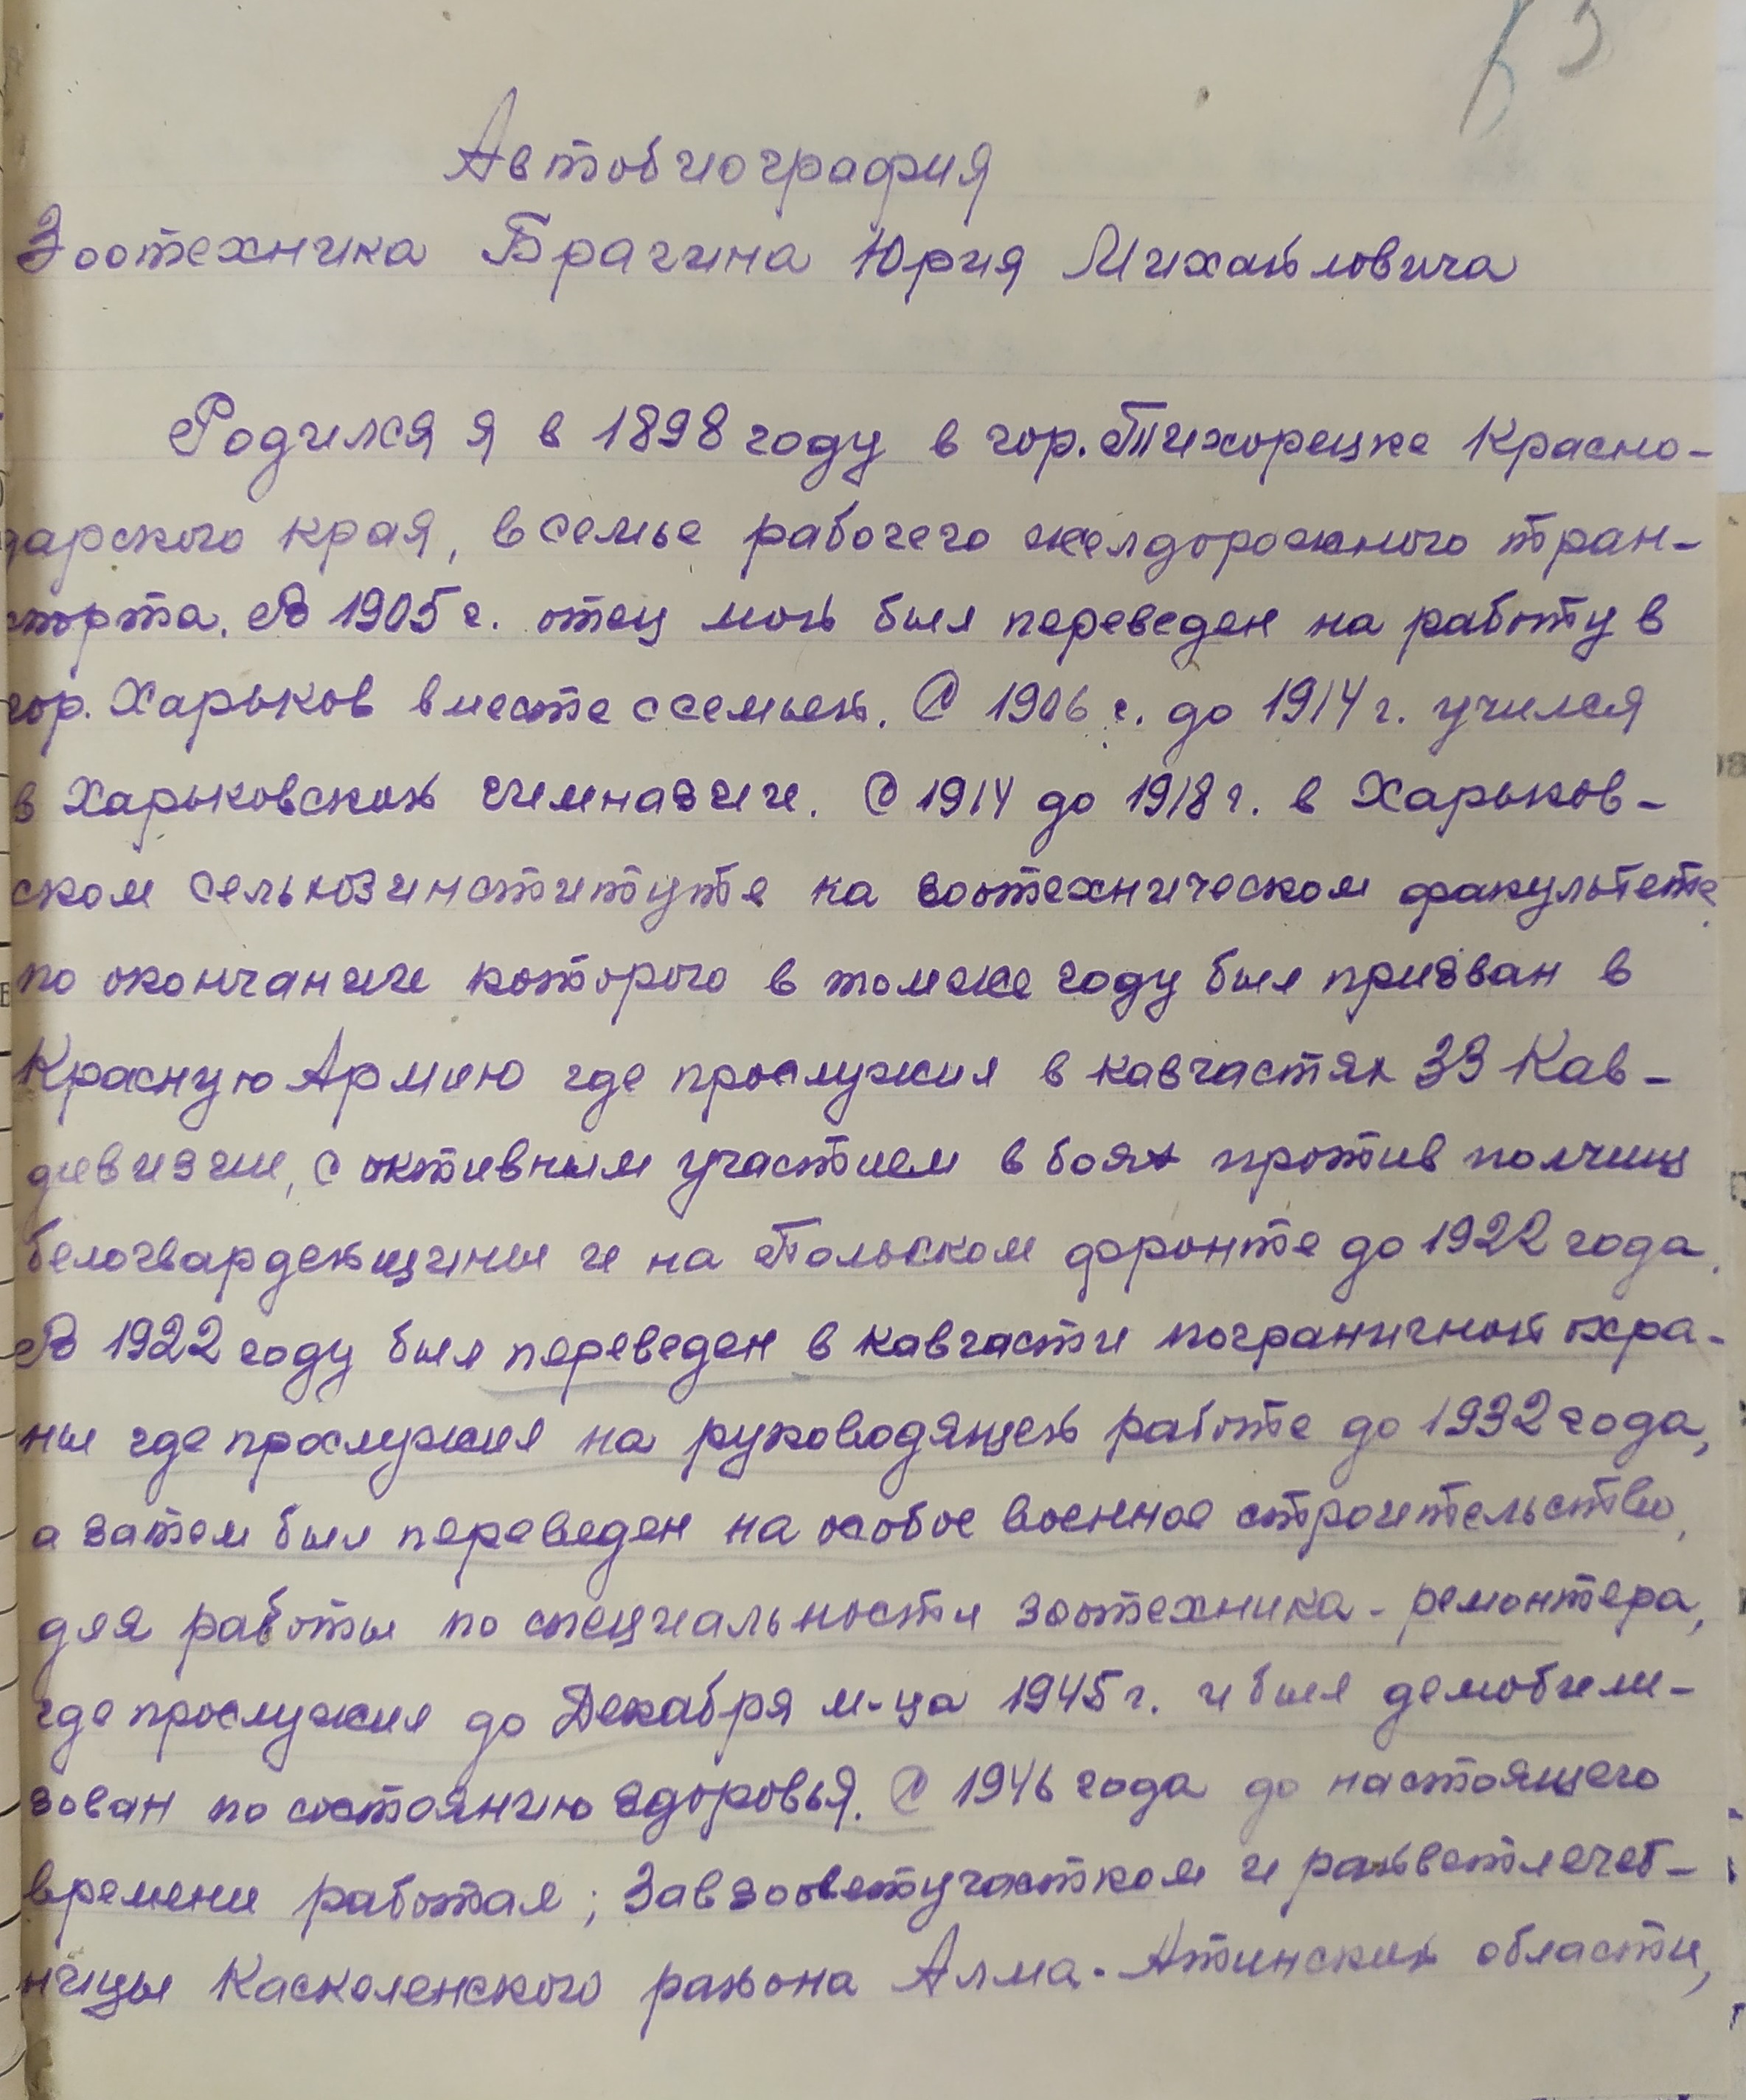 Автобиография
Зоотехника Брагина Юрия Михайловича
Родился я в 1898 году в гор. Тихорецке Красно-
дарского края, в семье рабочего желдорожного тран-
спорта. В 1905 г. отец мой был переведен на работу в
гор. Харьков вместе с семьей. С 1906 г. до 1914 г. учился
в Харьковской гимназии. С 1914 до 1918 г. в Харьков-
ском сельхозинституте на зоотехническом факультете
по окончании которого в томже году был призван в
Красную Армию где прослужил в кавчастях 33 Кав-
дивизии, с активным участием в боях против полчищ
белогвардейщины и на Польском фронте до 1922 года.
В 1922 году был переведен в кавчасти пограничной охра-
ны где прослужил на руководящей работе до 1932 года,
а затем был переведен на особое военное строительство,
для работы по специальности зоотехника - ремонтера,
где прослужил до Декабря м-ца 1945 г. и был демобили-
зован по состоянию здоровья. С 1946 года до настоящего
времени работал; Завзооветучастком и райветлечеб-
ницы Каскеленского района Алма-Атинской области,